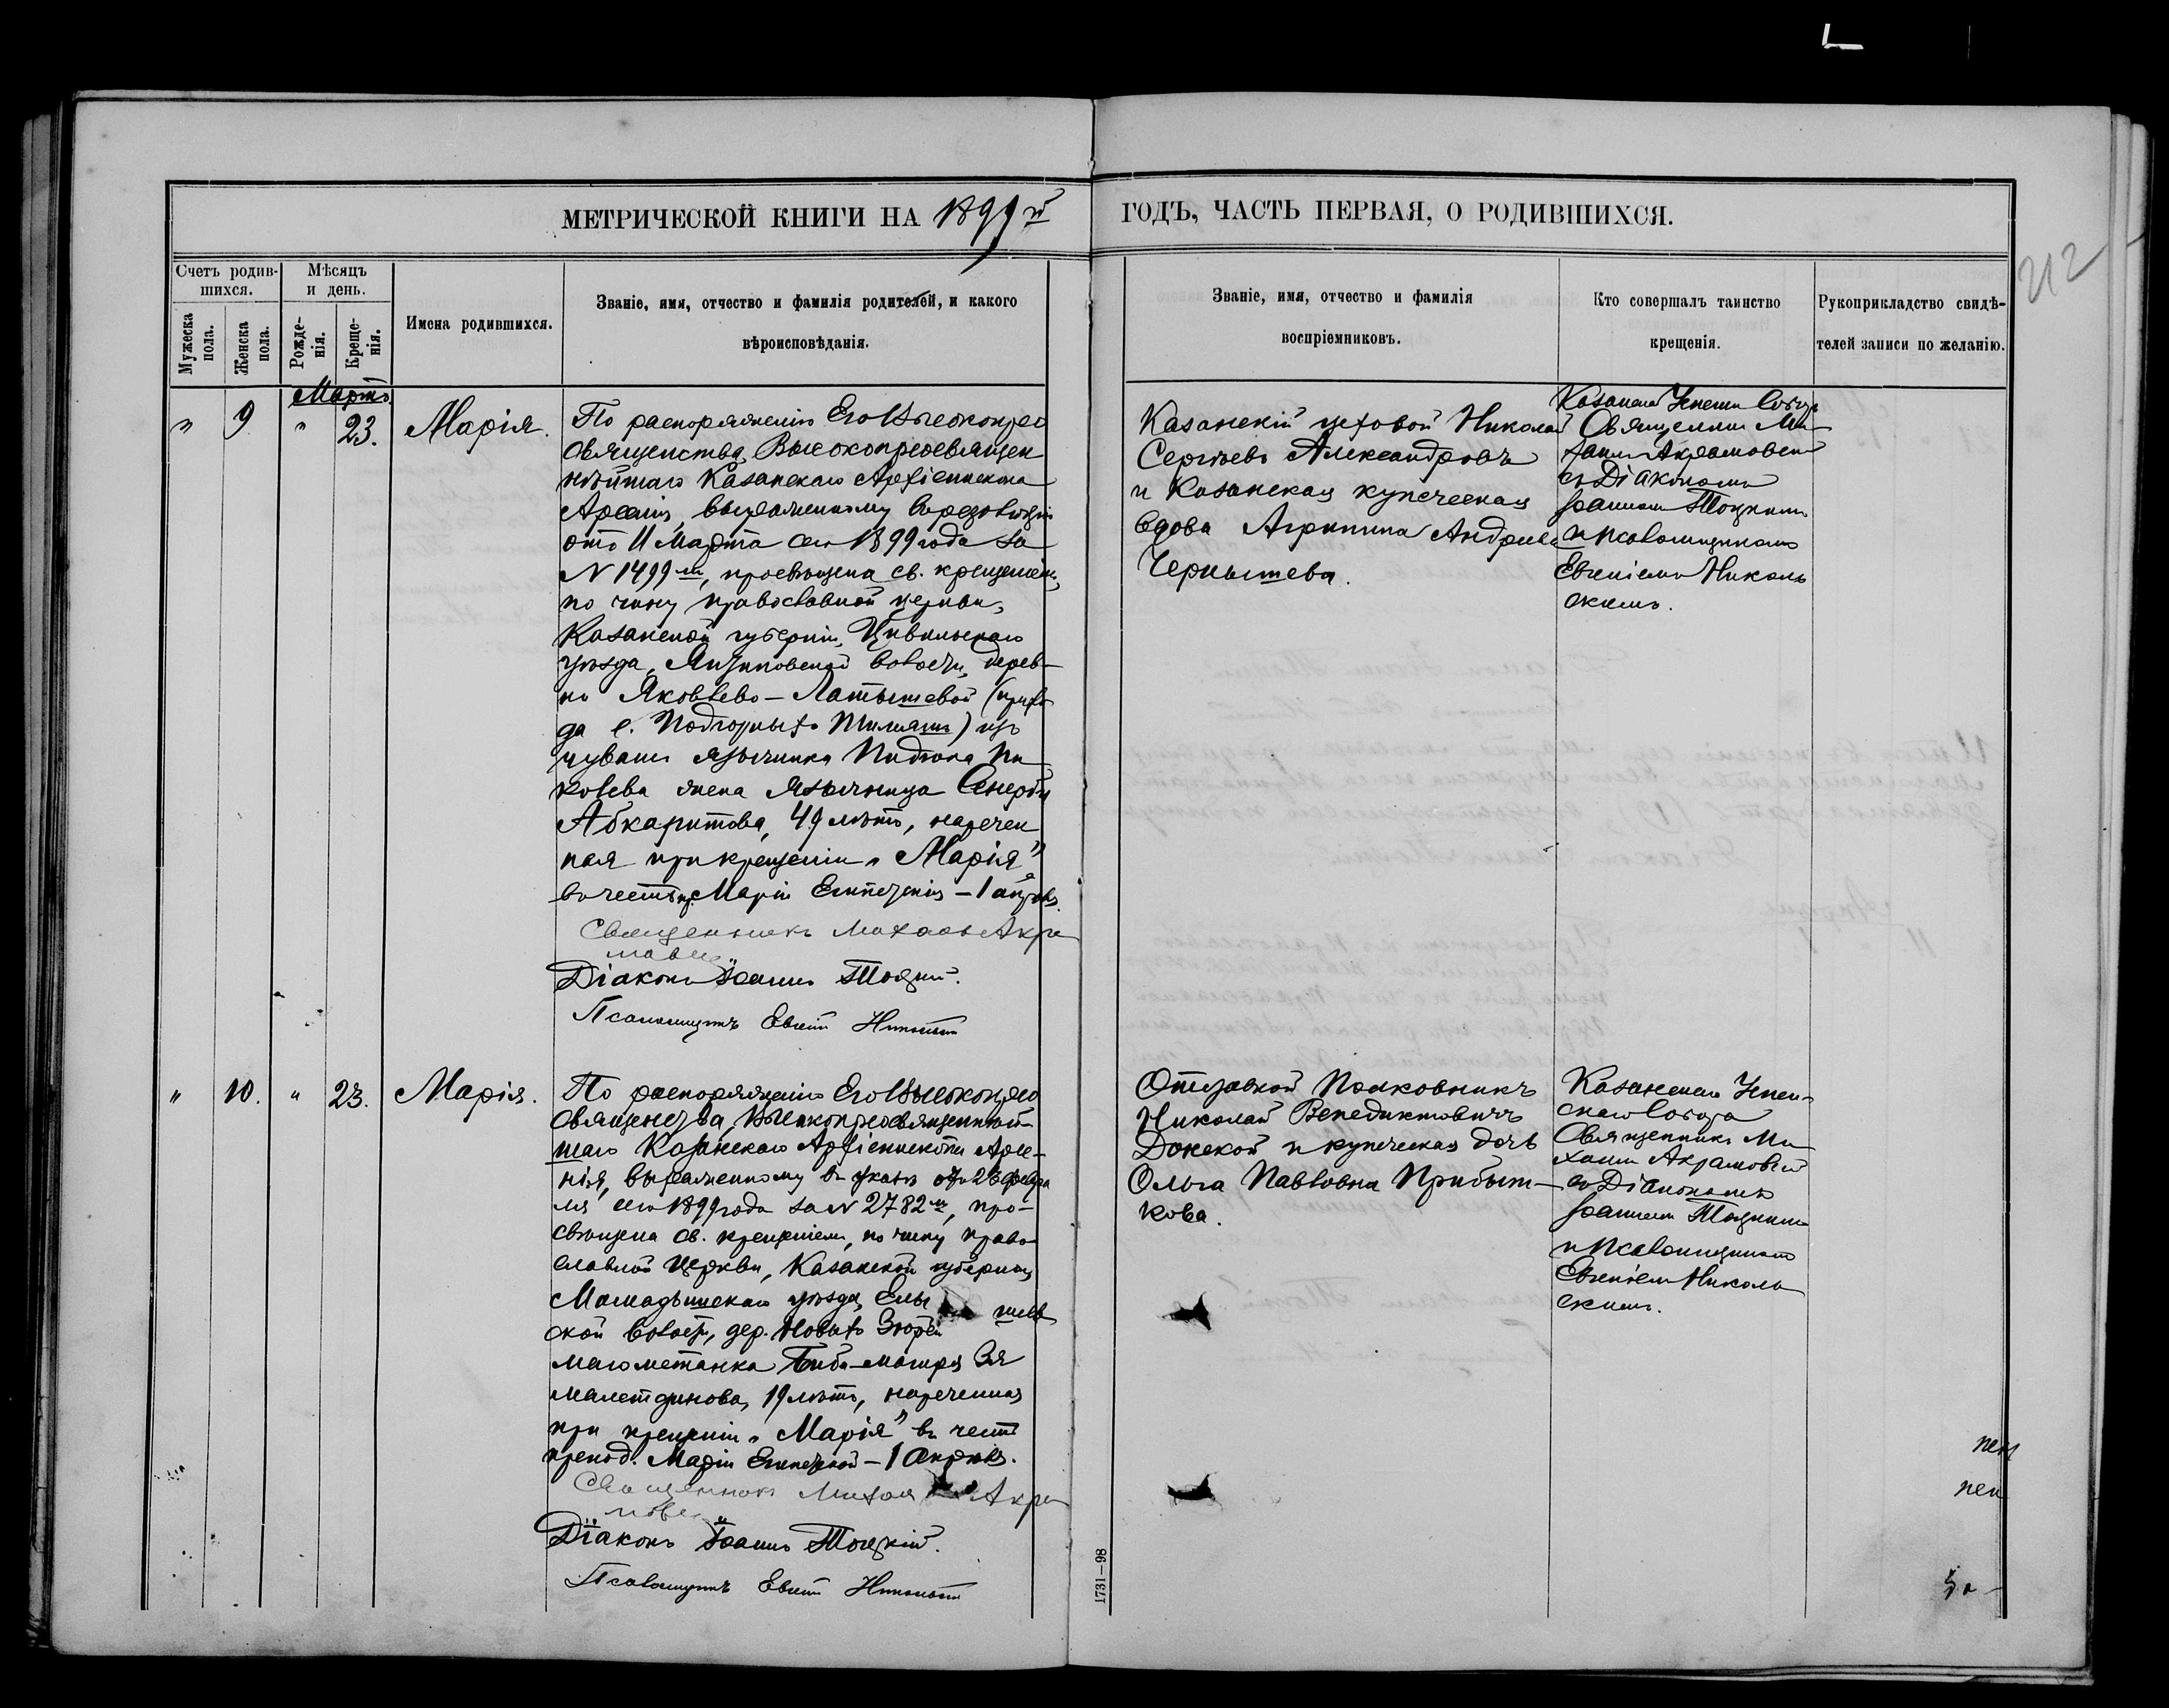 МЕТРИЧЕСКОЙ КНИГИ НА 1899й
ГОДЪ, ЧАСТЬ ПЕРВАЯ, О РОДИВШИХСЯ.
212
Счетъ родив-
шихся.
Мужеска
пола.
Женска
пола.
Мѣсяцъ
и день.
Рожде-
нія.
Креще-
нія.
Имена родившихся.
Званіе, имя, отчество и фамилія родителей, и какого
вѣроисповѣданія.
Званіе, имя, отчество и фамилія
воспріемниковъ.
Кто совершалъ таинство
крещенія.
Рукоприкладство свидѣ-
телей записи по желанію.
Мартъ.
" 9 " 23. Марія.
По распоряженію Его Высокопрео
священства, Высокопреосвящен
нѣйшаго Казанскаго Архіепископа
Арсенія, выраженному въ резолюціи
отъ 11 Марта сего 1899 года за
N 1499м, просвѣщена св. крещеніемъ,
по чину православной церкви,
Казанской губерніи, Цивильскаго
уѣзда, Янтиковской волости, дерев-
ни Яковлево-Латышевой (прихо
да с. Подгорныхъ Тимяшъ) изъ
чувашъ язычника
жена язычница
49 лѣтъ, наречен
ная при крещеніи "Марія"
въ честь пр. Маріи Египетскія - 1 апрѣля.
Священникъ Михаилъ Акра
мовскій
Діаконъ Іоаннъ Тоцкій.
Псаломщикъ Евгеній Никольскій
Казанскій цеховой Николай
Сергѣевъ Александровъ
и Казанская купеческая
вдова Агрипина Андреева
Чернышева.
Казанскаго Успенск. Собора
Священникъ Ми
хаилъ Акрамовскій
съ Діакономъ
Іоанномъ Тоцкимъ
и псаломщикомъ
Евгеніемъ Николь
скимъ.
" 10. " 23. Марія.
По распоряженію Его Высокопрео
священства, Высокопреосвященнѣй-
шаго Казанскаго Архіепископа Арсе-
нія, выраженному въ указѣ отъ 26 февра
ля сего 1899 года за N 2782м, про-
свѣщена св. крещеніемъ, по чину право-
славной церкви, Казанской губерніи,
Мамадышскаго уѣзда, Елы шев
ской волости, дер. Новыхъ Зюрей
магометанка Биби-
малетдинова, 19 лѣтъ, нареченная
при крещеніи "Марія" въ честь
препод. Маріи Египетской - 1 Апрѣля.
Священникъ Михаилъ Акра
мовскій
Діаконъ Іоаннъ Тоцкій.
Псаломщикъ Евгеній Никольскій
Отставной Полковникъ
Николай Венедиктовичъ
Донской и купеческая дочь
Ольга Павловна Прибыт-
кова.
Казанскаго Успен-
скаго Собора
Священникъ Ми
хаилъ Акрамовскій
съ Діакономъ
Іоанномъ Тоцкимъ
и псаломщикомъ
Евгеніемъ Николь
скимъ.
1731-98